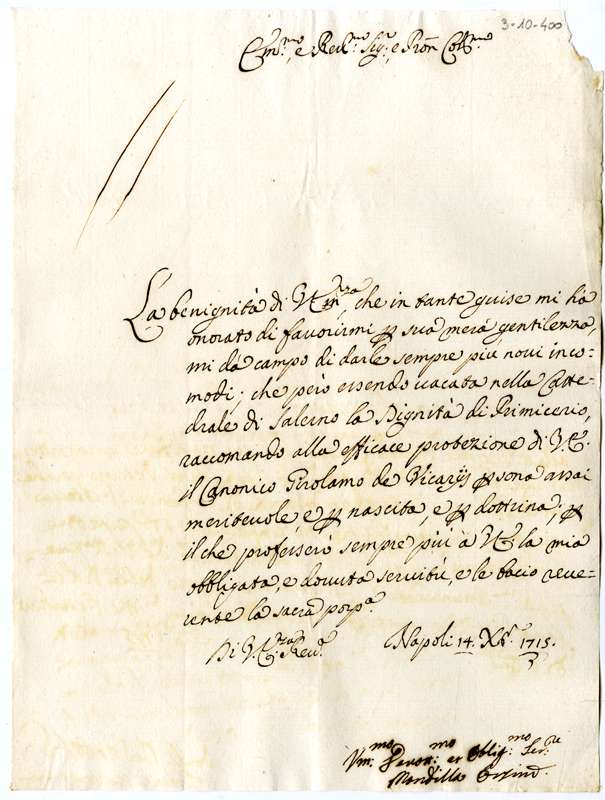 3-10-400
Em.mo, e Rev.mo Sig.r, e Pron Coll.mo
La benignità di V. Em.za, che in tante guise mi hà
onorato di favorirmi p sua mera gentilezza,
mi dà campo di darle sempre più novi inco-
modi; che però essendo vacata nella Catte-
drale di Salerno la Dignità di Primicerio,
raccomando alla efficace protezione di V. E.
il Canonico Girolamo de Vicarijs psona assai
meritevole, e p nascita, e p dottrina; p
il che professerò sempre più à V. E. la mia
obbligata, e dovuta servitù, e le bacio reve-
rente la sacra porp.a
Di V. E.za Rev.a Napoli 14. Xb.e 1715.
Um.mo Devot.mo et Oblig.mo Ser.re